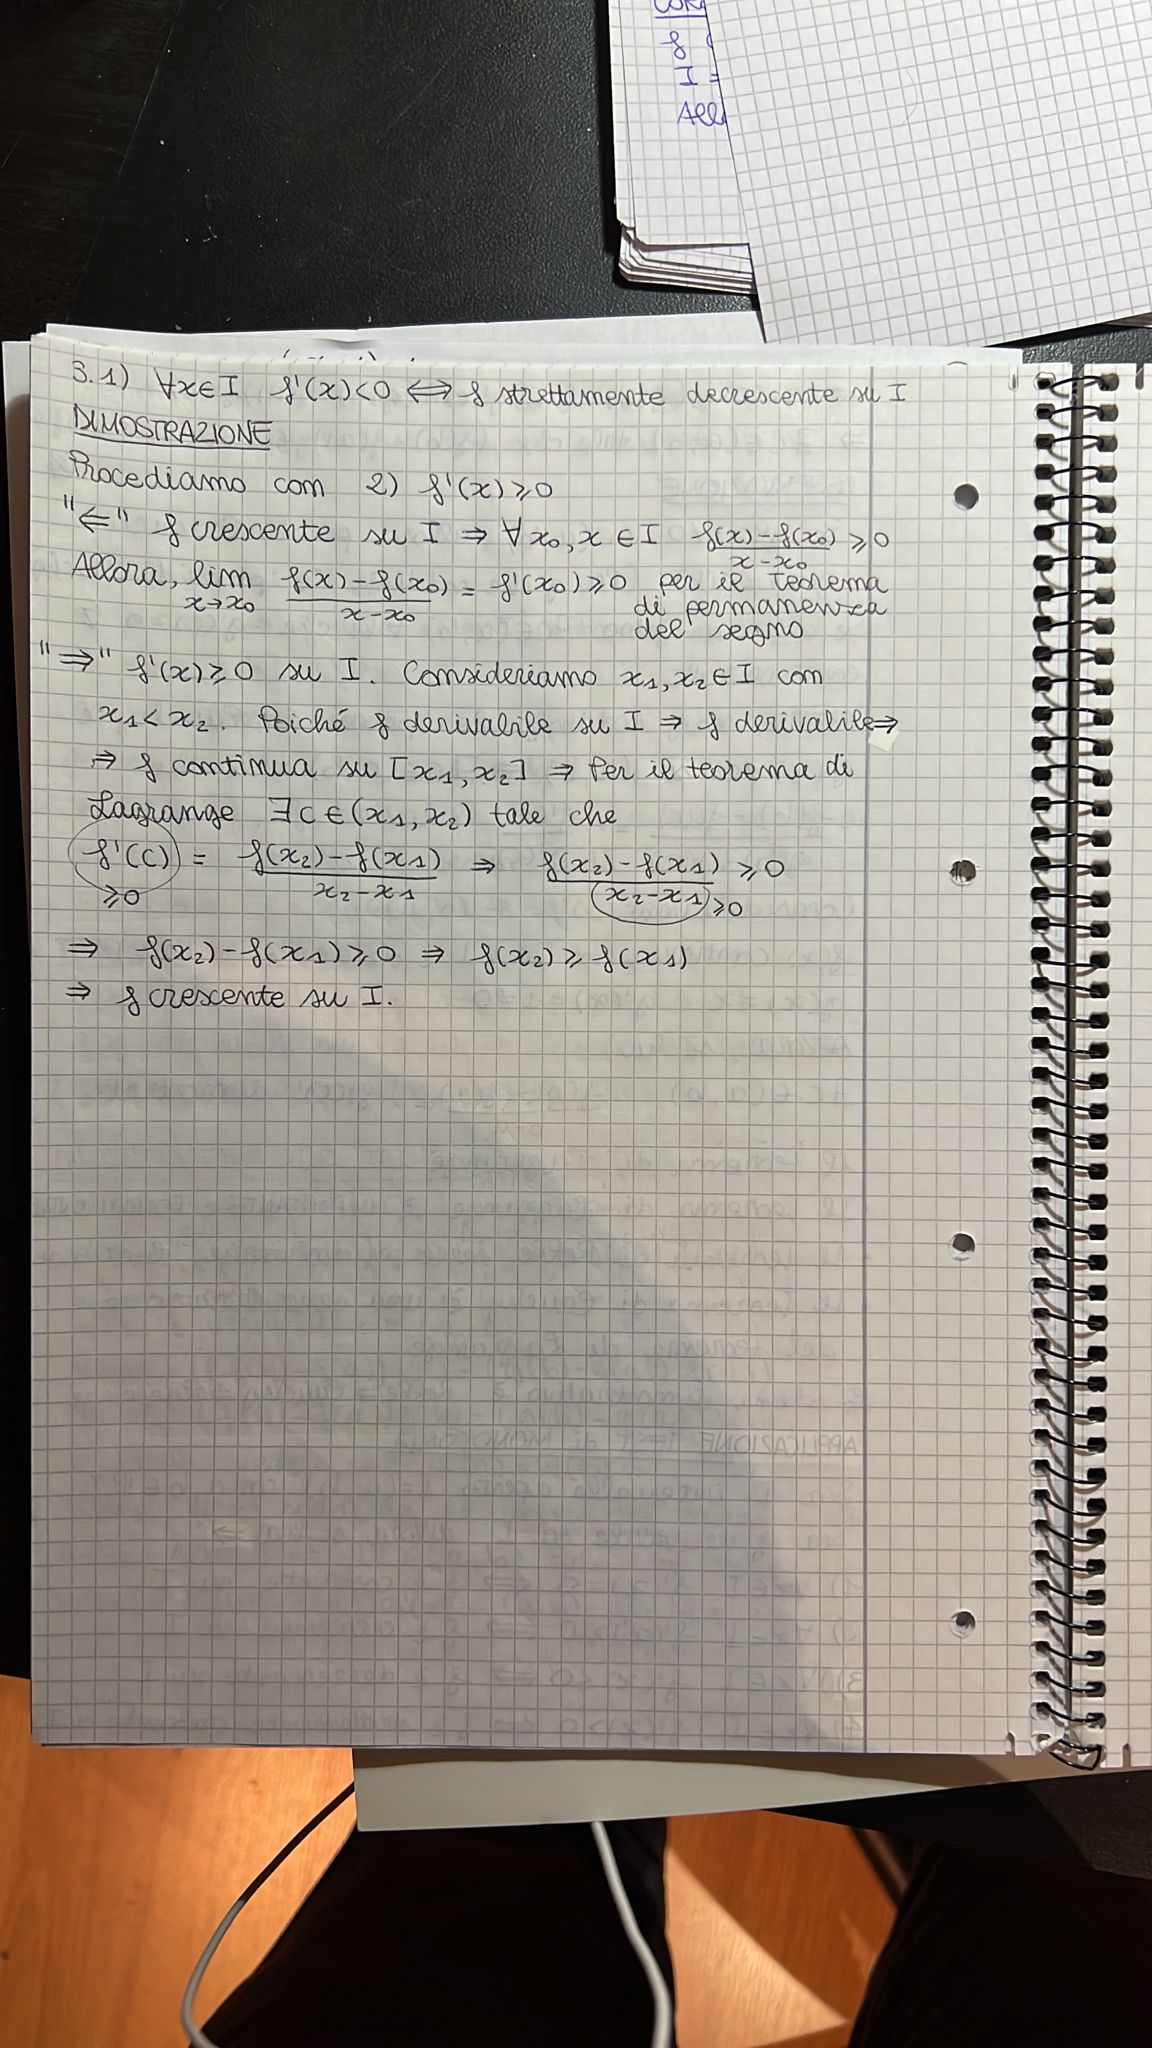 CORO
f
I =
Alla
3.1) ∀x∈I f'(x)<0 ⟺ f strettamente decrescente su I
DIMOSTRAZIONE
Procediamo con 2) f'(x)≥0
"⇐" f crescente su I ⇒ ∀x₀,x ∈ I (f(x)-f(x₀))/(x-x₀) ≥0
Allora, lim x→x₀ (f(x)-f(x₀))/(x-x₀) = f'(x₀)≥0 per il teorema
di permanenza
del segno
"⇒" f'(x)≥0 su I. Consideriamo x₁,x₂∈I con
x₁<x₂. Poiché f derivabile su I ⇒ f derivabile⇒
⇒ f continua su [x₁,x₂] ⇒ Per il teorema di
Lagrange ∃c∈(x₁,x₂) tale che
f'(c) = (f(x₂)-f(x₁))/(x₂-x₁) ⇒ (f(x₂)-f(x₁))/(x₂-x₁) ≥0
≥0 ≥0
⇒ f(x₂)-f(x₁)≥0 ⇒ f(x₂)≥f(x₁)
⇒ f crescente su I.